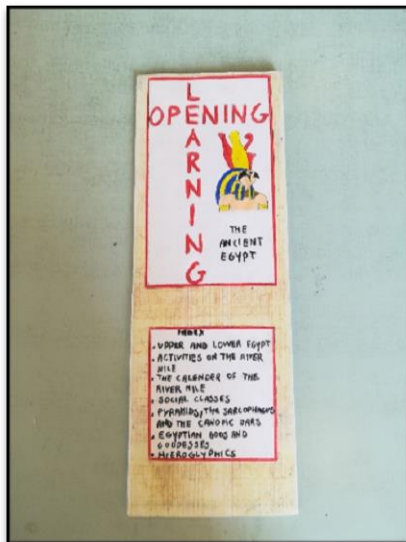 OPENING
LEARNING
THE
ANCIENT
EGYPT
INDEX
• UPPER AND LOWER EGYPT
• ACTIVITIES ON THE RIVER
NILE
• THE CALENDER OF THE
RIVER NILE
• SOCIAL CLASSES
• PYRAMIDS, THE SARCOPHAGUS
AND THE CANOPIC JARS
• EGYPTIAN GODS AND
GODDESSES
• HIEROGLYPHICS